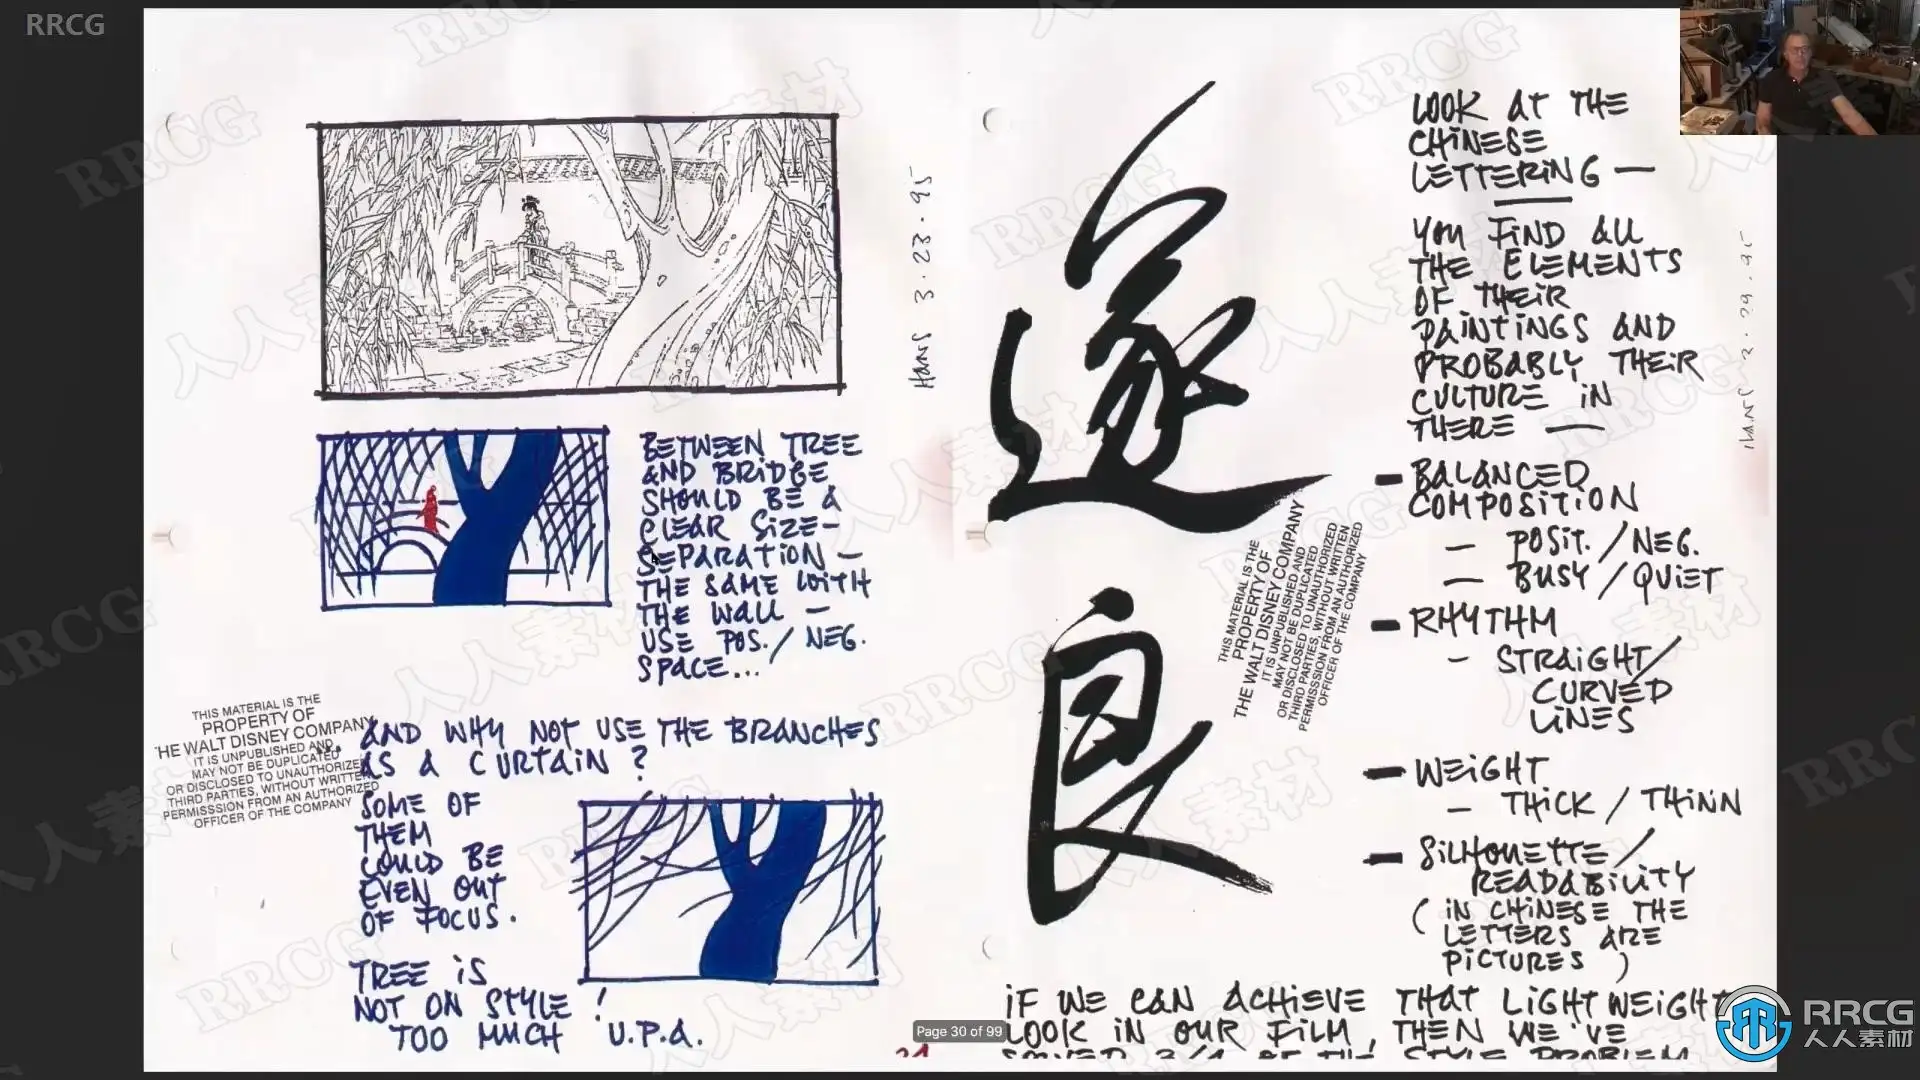 RRCG
HANS 3.23.95
BETWEEN TREE
AND BRIDGE
SHOULD BE A
CLEAR SIZE-
SEPARATION —
THE SAME WITH
THE WALL —
USE POS./NEG.
SPACE...
THIS MATERIAL IS THE
PROPERTY OF
HE WALT DISNEY COMPANY
IT IS UNPUBLISHED AND
MAY NOT BE DUPLICATED
OR DISCLOSED TO UNAUTHORIZED
THIRD PARTIES, WITHOUT WRITTEN
PERMISSSION FROM AN AUTHORIZED
OFFICER OF THE COMPANY
AND WHY NOT USE THE BRANCHES
AS A CURTAIN?
SOME OF
THEM
COULD BE
EVEN OUT
OF FOCUS.
TREE IS
NOT ON STYLE!
TOO MUCH U.P.A.
遂
良
THIS MATERIAL IS THE
PROPERTY OF
THE WALT DISNEY COMPANY
IT IS UNPUBLISHED AND
MAY NOT BE DUPLICATED
OR DISCLOSED TO UNAUTHORIZED
THIRD PARTIES, WITHOUT WRITTEN
PERMISSSION FROM AN AUTHORIZED
OFFICER OF THE COMPANY
LOOK AT THE
CHINESE
LETTERING —
YOU FIND ALL
THE ELEMENTS
OF THEIR
PAINTINGS AND
PROBABLY THEIR
CULTURE IN
THERE —
- BALANCED
COMPOSITION
- POSIT./NEG.
- BUSY/QUIET
- RHYTHM
- STRAIGHT/
CURVED
LINES
- WEIGHT
- THICK / THINN
- SILHOUETTE/
READABILITY
(IN CHINESE THE
LETTERS ARE
PICTURES)
IF WE CAN ACHIEVE THAT LIGHTWEIGHT
LOOK IN OUR FILM, THEN WE'VE
SOLVED 3/4 OF THE STYLE PROBLEM
Page 30 of 99
RRCG
人人素材